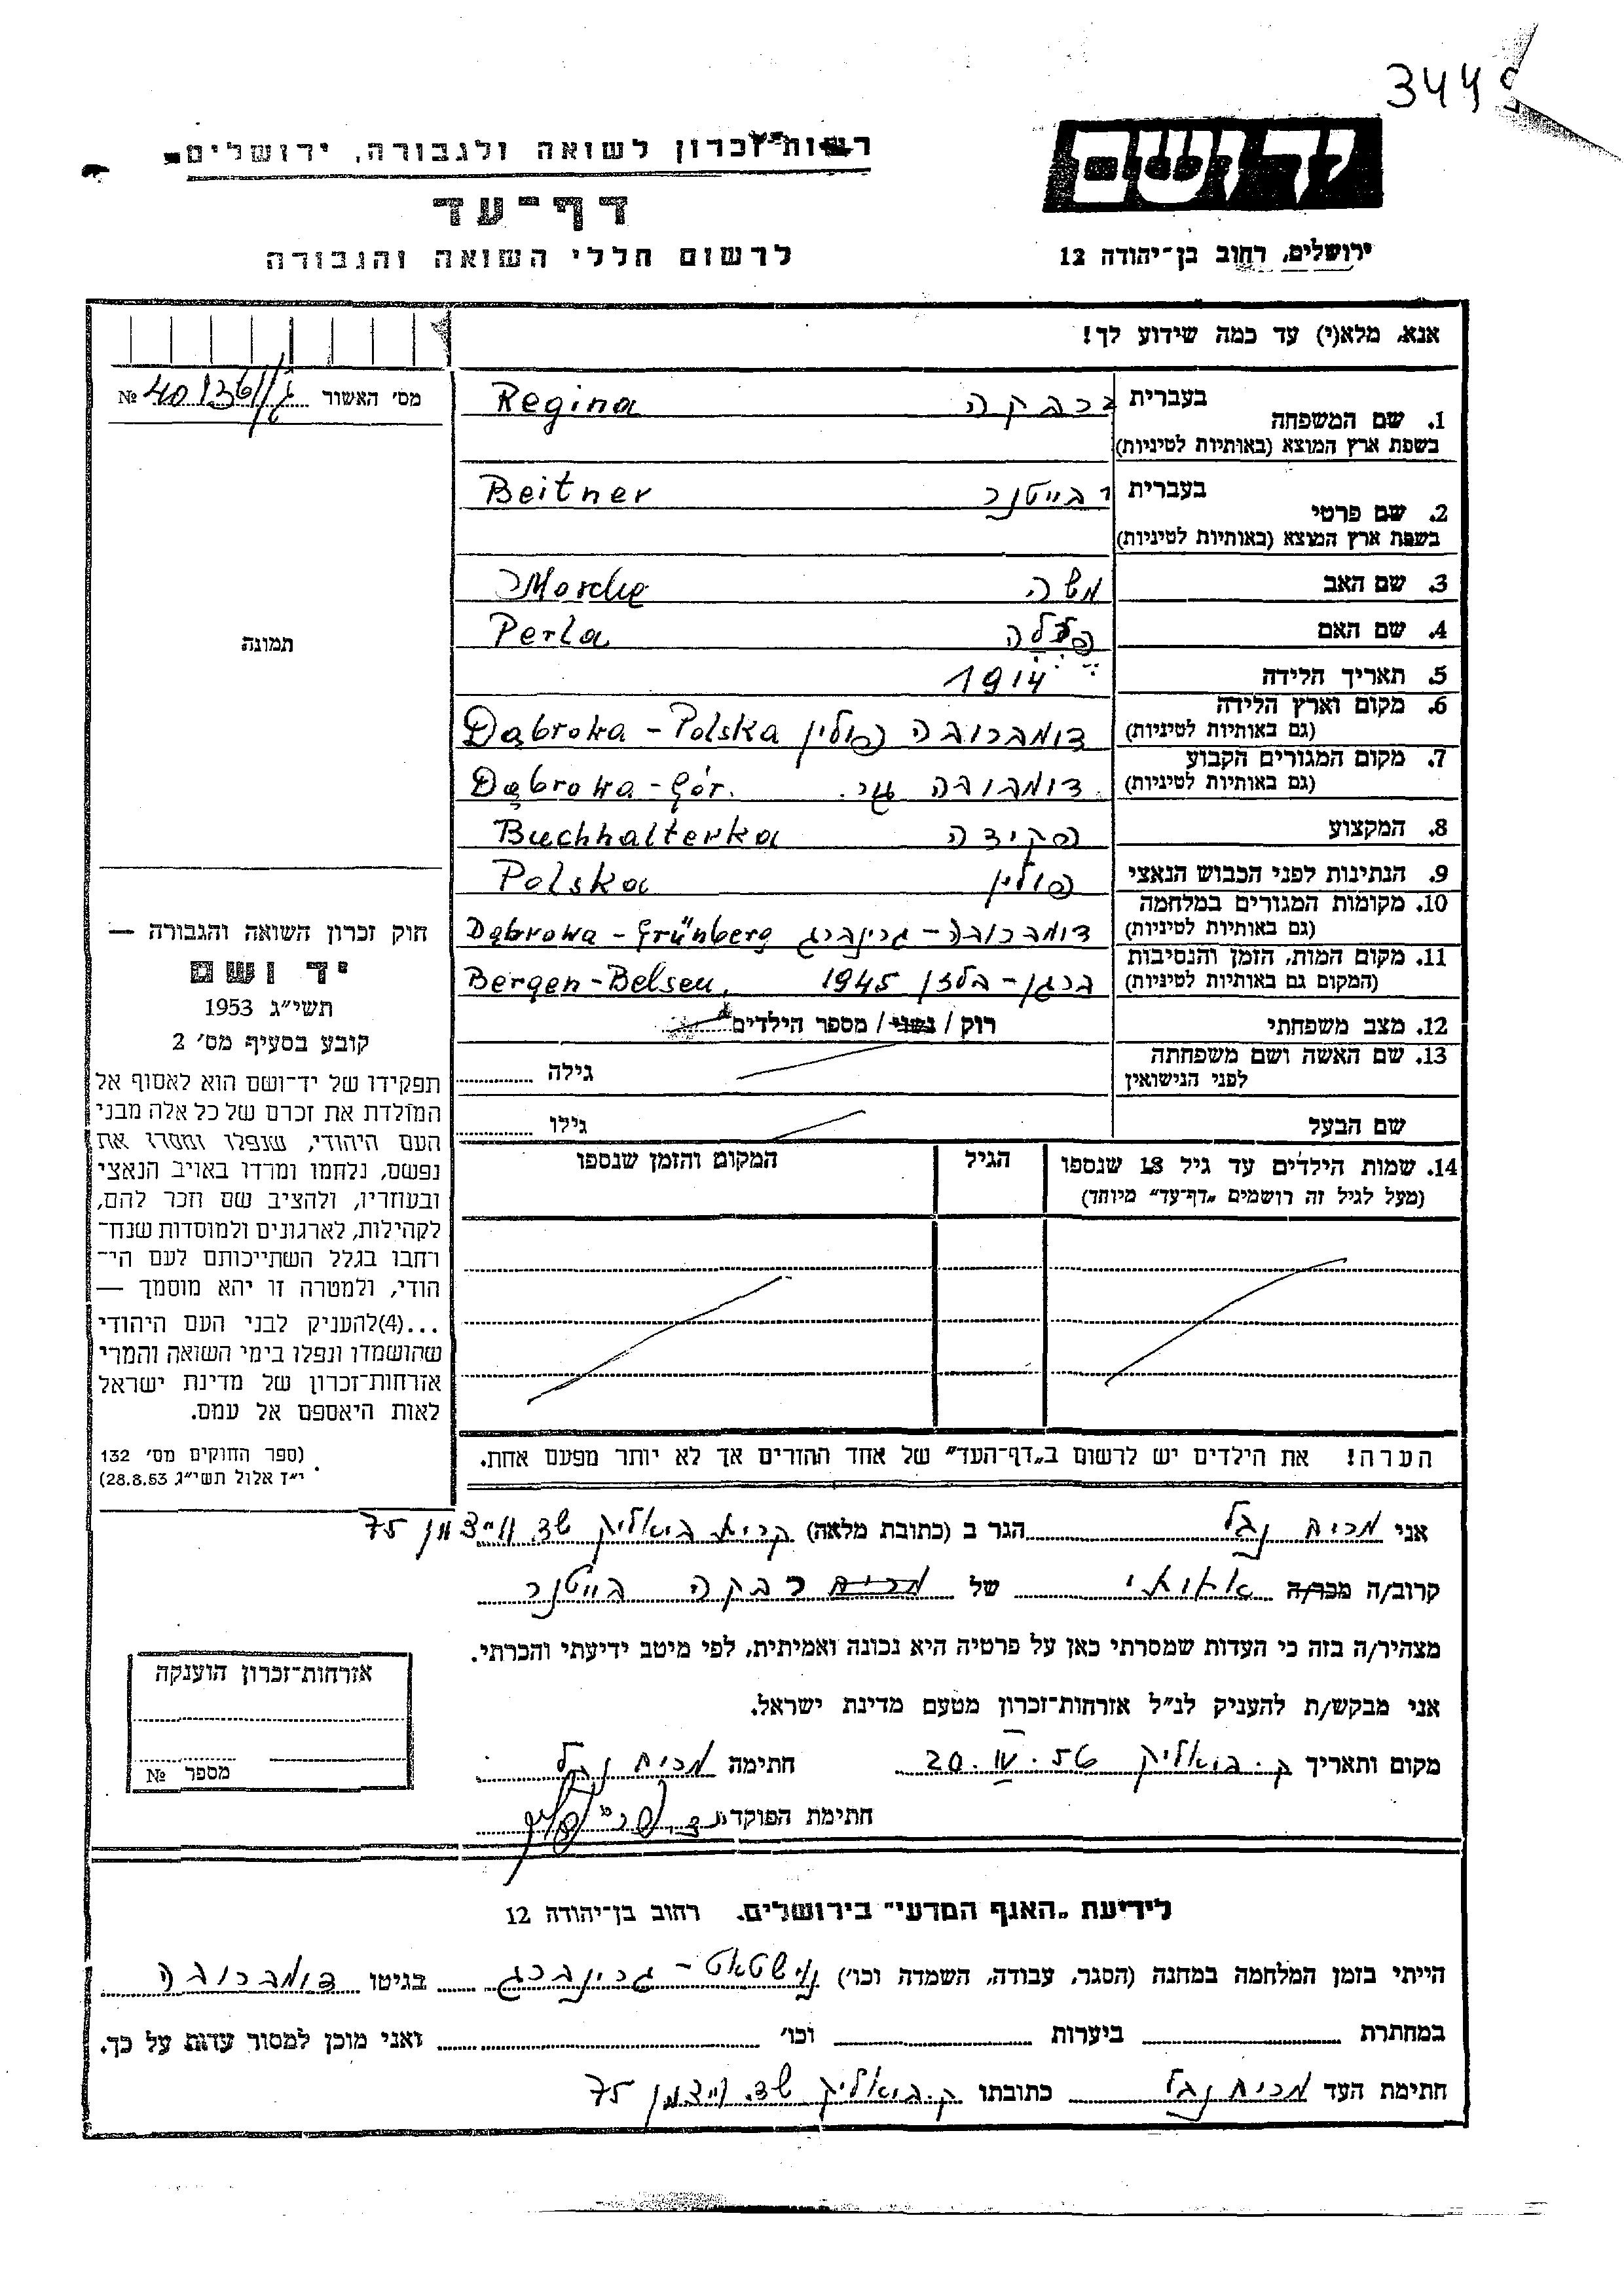 344
רשות זכרון לשואה ולגבורה, ירושלים
דף־עד
לרשום חללי השואה והגבורה
יד ושם
ירושלים, רחוב בן־יהודה 12
אנא, מלא(י) עד כמה שידוע לך!
מס׳ האשור № 40136
1. שם המשפחה בעברית רבקה Regina
בשפת ארץ המוצא (באותיות לטיניות)
2. שם פרטי בעברית בייטנר Beitner
בשפת ארץ המוצא (באותיות לטיניות)
3. שם האב משה
4. שם האם פרלה Perla
5. תאריך הלידה 1914
6. מקום וארץ הלידה דומברובה פולין Dąbrowa - Polska
(גם באותיות לטיניות)
7. מקום המגורים הקבוע דומברובה Dąbrowa - Gór.
(גם באותיות לטיניות)
8. המקצוע פקידה Buchhalterka
9. הנתינות לפני הכבוש הנאצי פולין Polska
10. מקומות המגורים במלחמה דומברובה - גרינברג Dąbrowa - Grünberg
(גם באותיות לטיניות)
11. מקום המות, הזמן והנסיבות ברגן - בלזן 1945 Bergen-Belsen,
(המקום גם באותיות לטיניות)
12. מצב משפחתי רוק / נשוי / מספר הילדים
13. שם האשה ושם משפחתה גילה
לפני הנישואין
שם הבעל גילו
14. שמות הילדים עד גיל 18 שנספו הגיל המקום והזמן שנספו
(מעל לגיל זה רושמים „דף־עד״ מיוחד)
הערה! את הילדים יש לרשום ב„דף־העד״ של אחד ההורים אך לא יותר מפעם אחת.
תמונה
חוק זכרון השואה והגבורה —
יד ושם
תשי״ג 1953
קובע בסעיף מס׳ 2
תפקידו של יד־ושם הוא לאסוף אל
המולדת את זכרם של כל אלה מבני
העם היהודי, שנפלו ומסרו את
נפשם, נלחמו ומרדו באויב הנאצי
ובעוזריו, ולהציב שם וזכר להם,
לקהילות, לארגונים ולמוסדות שנח־
רבו בגלל השתייכותם לעם הי־
הודי, ולמטרה זו יהא מוסמך —
...(4) להעניק לבני העם היהודי
שהושמדו ונפלו בימי השואה והמרי
אזרחות־זכרון של מדינת ישראל
לאות היאספם אל עמם.
(ספר החוקים מס׳ 132
י״ד אלול תשי״ג 28.8.53)
אני מרים נגל הגר ב (כתובת מלאה) קרית ביאליק שד. וייצמן 75
קרוב/ה מכר/ה אחותי של מרים רבקה בייטנר
מצהיר/ה בזה כי העדות שמסרתי כאן על פרטיה היא נכונה ואמיתית, לפי מיטב ידיעתי והכרתי.
אני מבקש/ת להעניק לנ״ל אזרחות־זכרון מטעם מדינת ישראל.
מקום ותאריך ק. ביאליק 20. IV. 56 חתימה מרים נגל
חתימת הפוקד
אזרחות־זכרון הוענקה
מספר №
לידיעת „האגף המדעי״ בירושלים. רחוב בן־יהודה 12
הייתי בזמן המלחמה במחנה (הסגר, עבודה, השמדה וכו׳) נוישטאט - גרינברג בגיטו דומברובה
במחתרת ביערות וכו׳ ואני מוכן למסור עדות על כך.
חתימת העד מרים נגל כתובתו ק. ביאליק שד. וייצמן 75